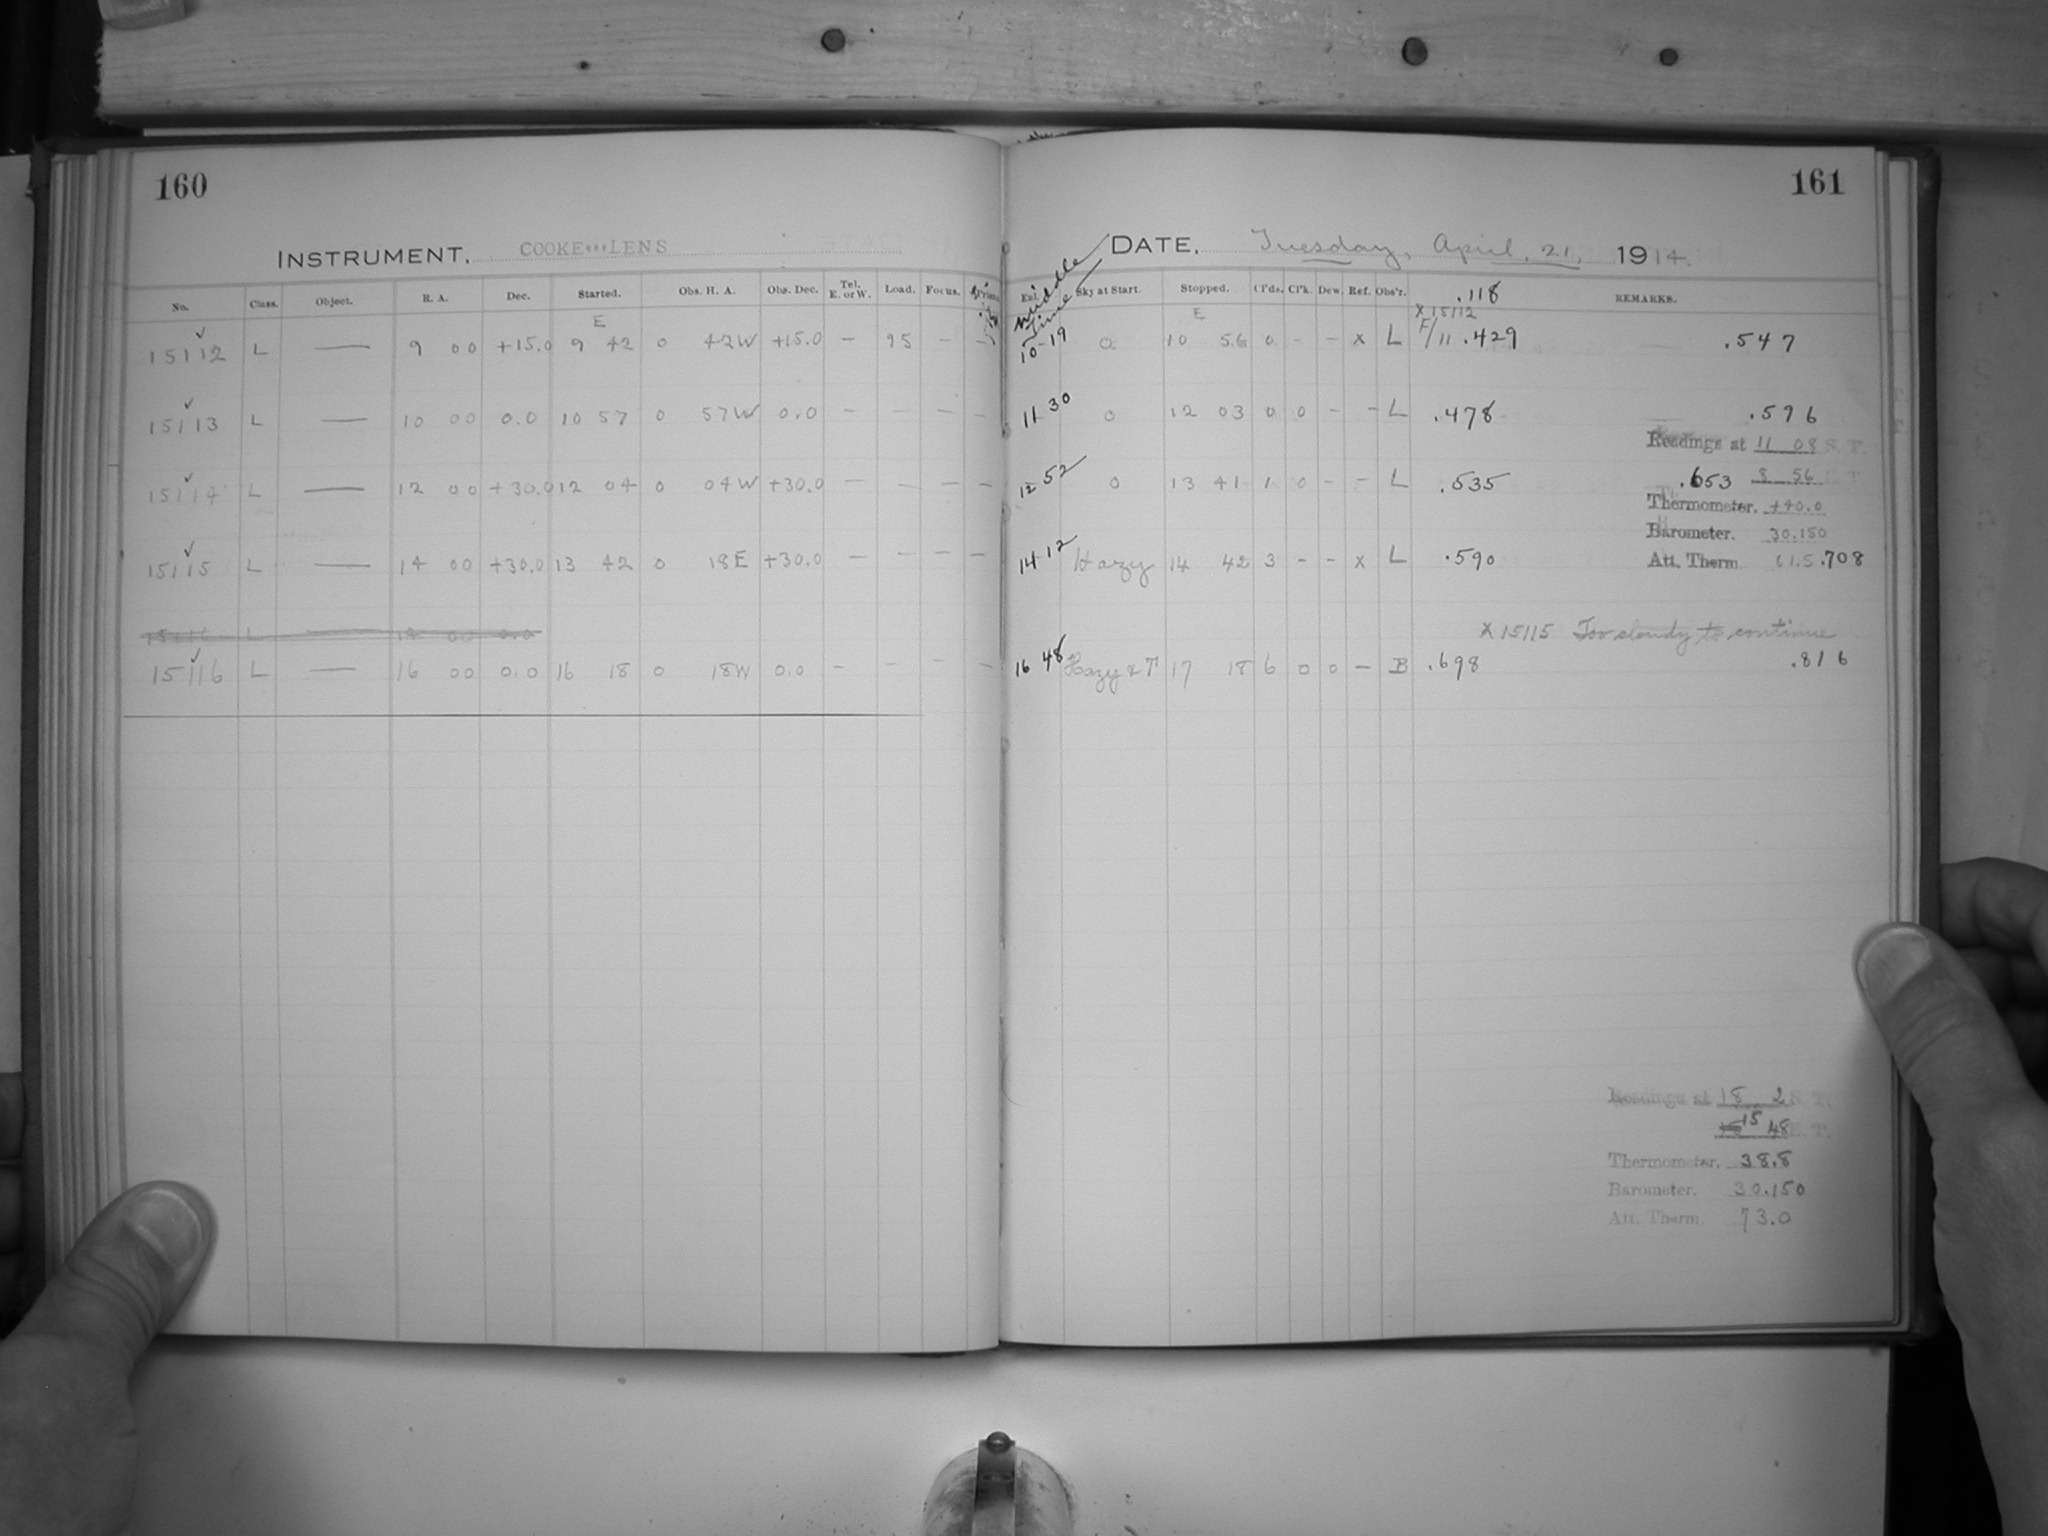 160
INSTRUMENT. COOKE LENS
No. Class. Object. R. A. Dec. Started. Obs. H. A. Obs. Dec. Tel. E. or W. Load. Focus.
15112 L — 9 00 +15.0 E 9 42 0 42W +15.0 — 95 - -
15113 L — 10 00 0.0 10 57 0 57W 0.0 — — — —
15114 L — 12 00 +30.0 12 04 0 04W +30.0 — — — —
15115 L — 14 00 +30.0 13 42 0 18E +30.0 — — — —
15116 L — 14 00 0.0
15116 L — 16 00 0.0 16 18 0 18W 0.0 — — — —
161
DATE. Tuesday, April, 21, 1914.
Middle Time Sky at Start. Stopped. Cl'ds. Cl'k. Dew. Ref. Obs'r. .118 REMARKS.
X 15112
10-19 0 E 10 56 0 - - x L F/11 .429 .547
11 30 0 12 03 0 0 - - L .478 .596
Readings at 11 08 S. T.
12 52 0 13 41 1 0 - - L .535 .653 8 56 E. T.
Thermometer. +40.0
Barometer. 30.150
14 12 Hazy 14 42 3 - - x L .590 Att. Therm 61.5 .708
X 15115 Too cloudy to continue
16 48 Hazy & T 17 18 6 0 0 — B .698 .816
Readings at 18 2 S. T.
15 48 E. T.
Thermometer. 38.8
Barometer. 30.150
Att. Therm. 73.0